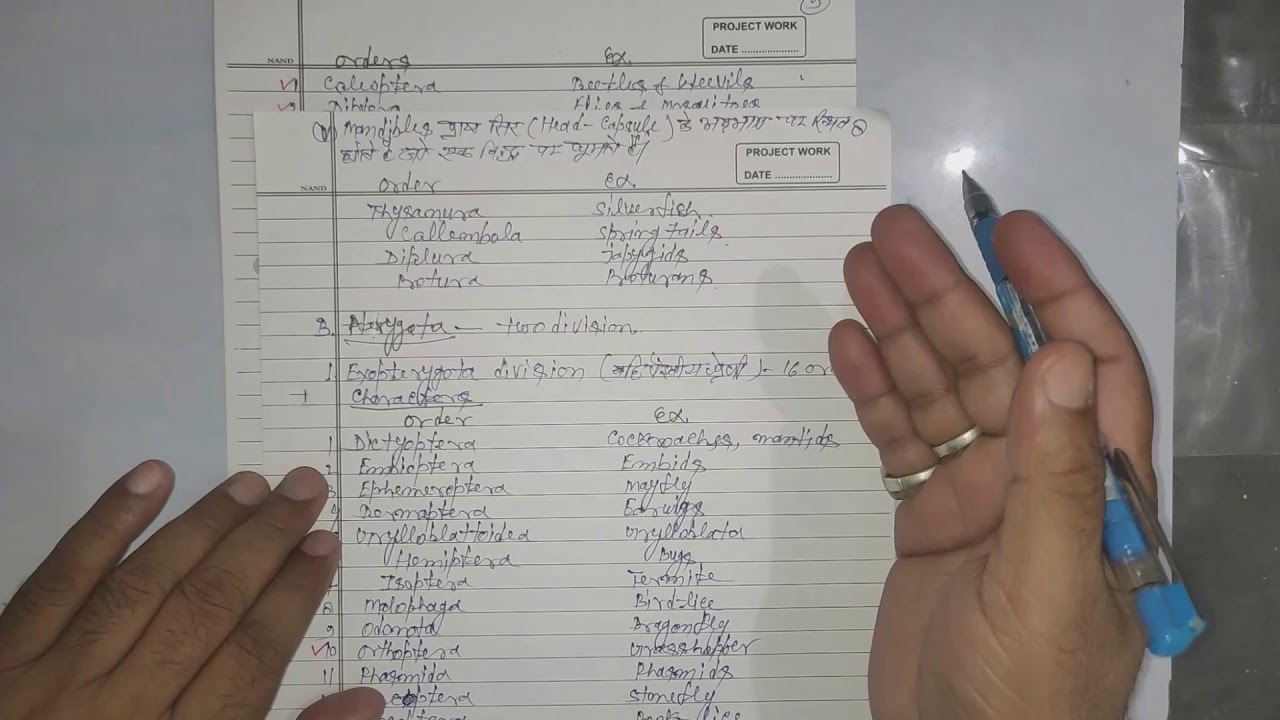 PROJECT WORK
DATE ....................
NAND
orders Ex.
Caleoptera Beetles & Weevils
Diptera Flies & Mosquitoes
(v) Mandibles प्रायः सिर (Head-Capsule) के अग्रभाग पर स्थित
होते हैं जो एक बिन्दु पर घूमते हैं।
PROJECT WORK
DATE ....................
NAND
order Ex.
Thysanura Silverfish.
Callembala Spring tails.
Diplura Japygids
Protura Proturans.
B. Pterygota — two division.
1. Exopterygota division - 16 or
Characters
order Ex.
1 Dictyoptera Cockroaches, mantids
2 Embioptera Embids
3 Ephemeroptera mayfly
4 Dermaptera Earwigs
Grylloblattoidea Grylloblata
Hemiptera Bugs
Isoptera Termite
8 Malophaga Bird-lice
9 Odonata Dragonfly
10 Orthoptera Grasshopper
11 Phasmida Phasmids
coptera Stonefly